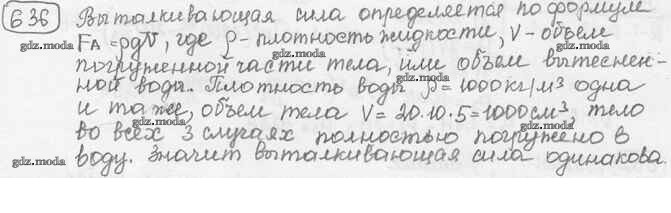 636 Выталкивающая сила определяется по формуле
FА=ρgV, где ρ-плотность жидкости, V-объем
погруженной части тела, или объем вытеснен-
ной воды. Плотность воды ρ=1000кг/м³ одна
и та же, объем тела V=20·10·5=1000см³, тело
во всех 3 случаях полностью погружено в
воду. Значит выталкивающая сила одинакова.
gdz.moda gdz.moda gdz.moda
gdz.moda gdz.moda
gdz.moda gdz.moda gdz.moda
gdz.moda gdz.moda gdz.moda